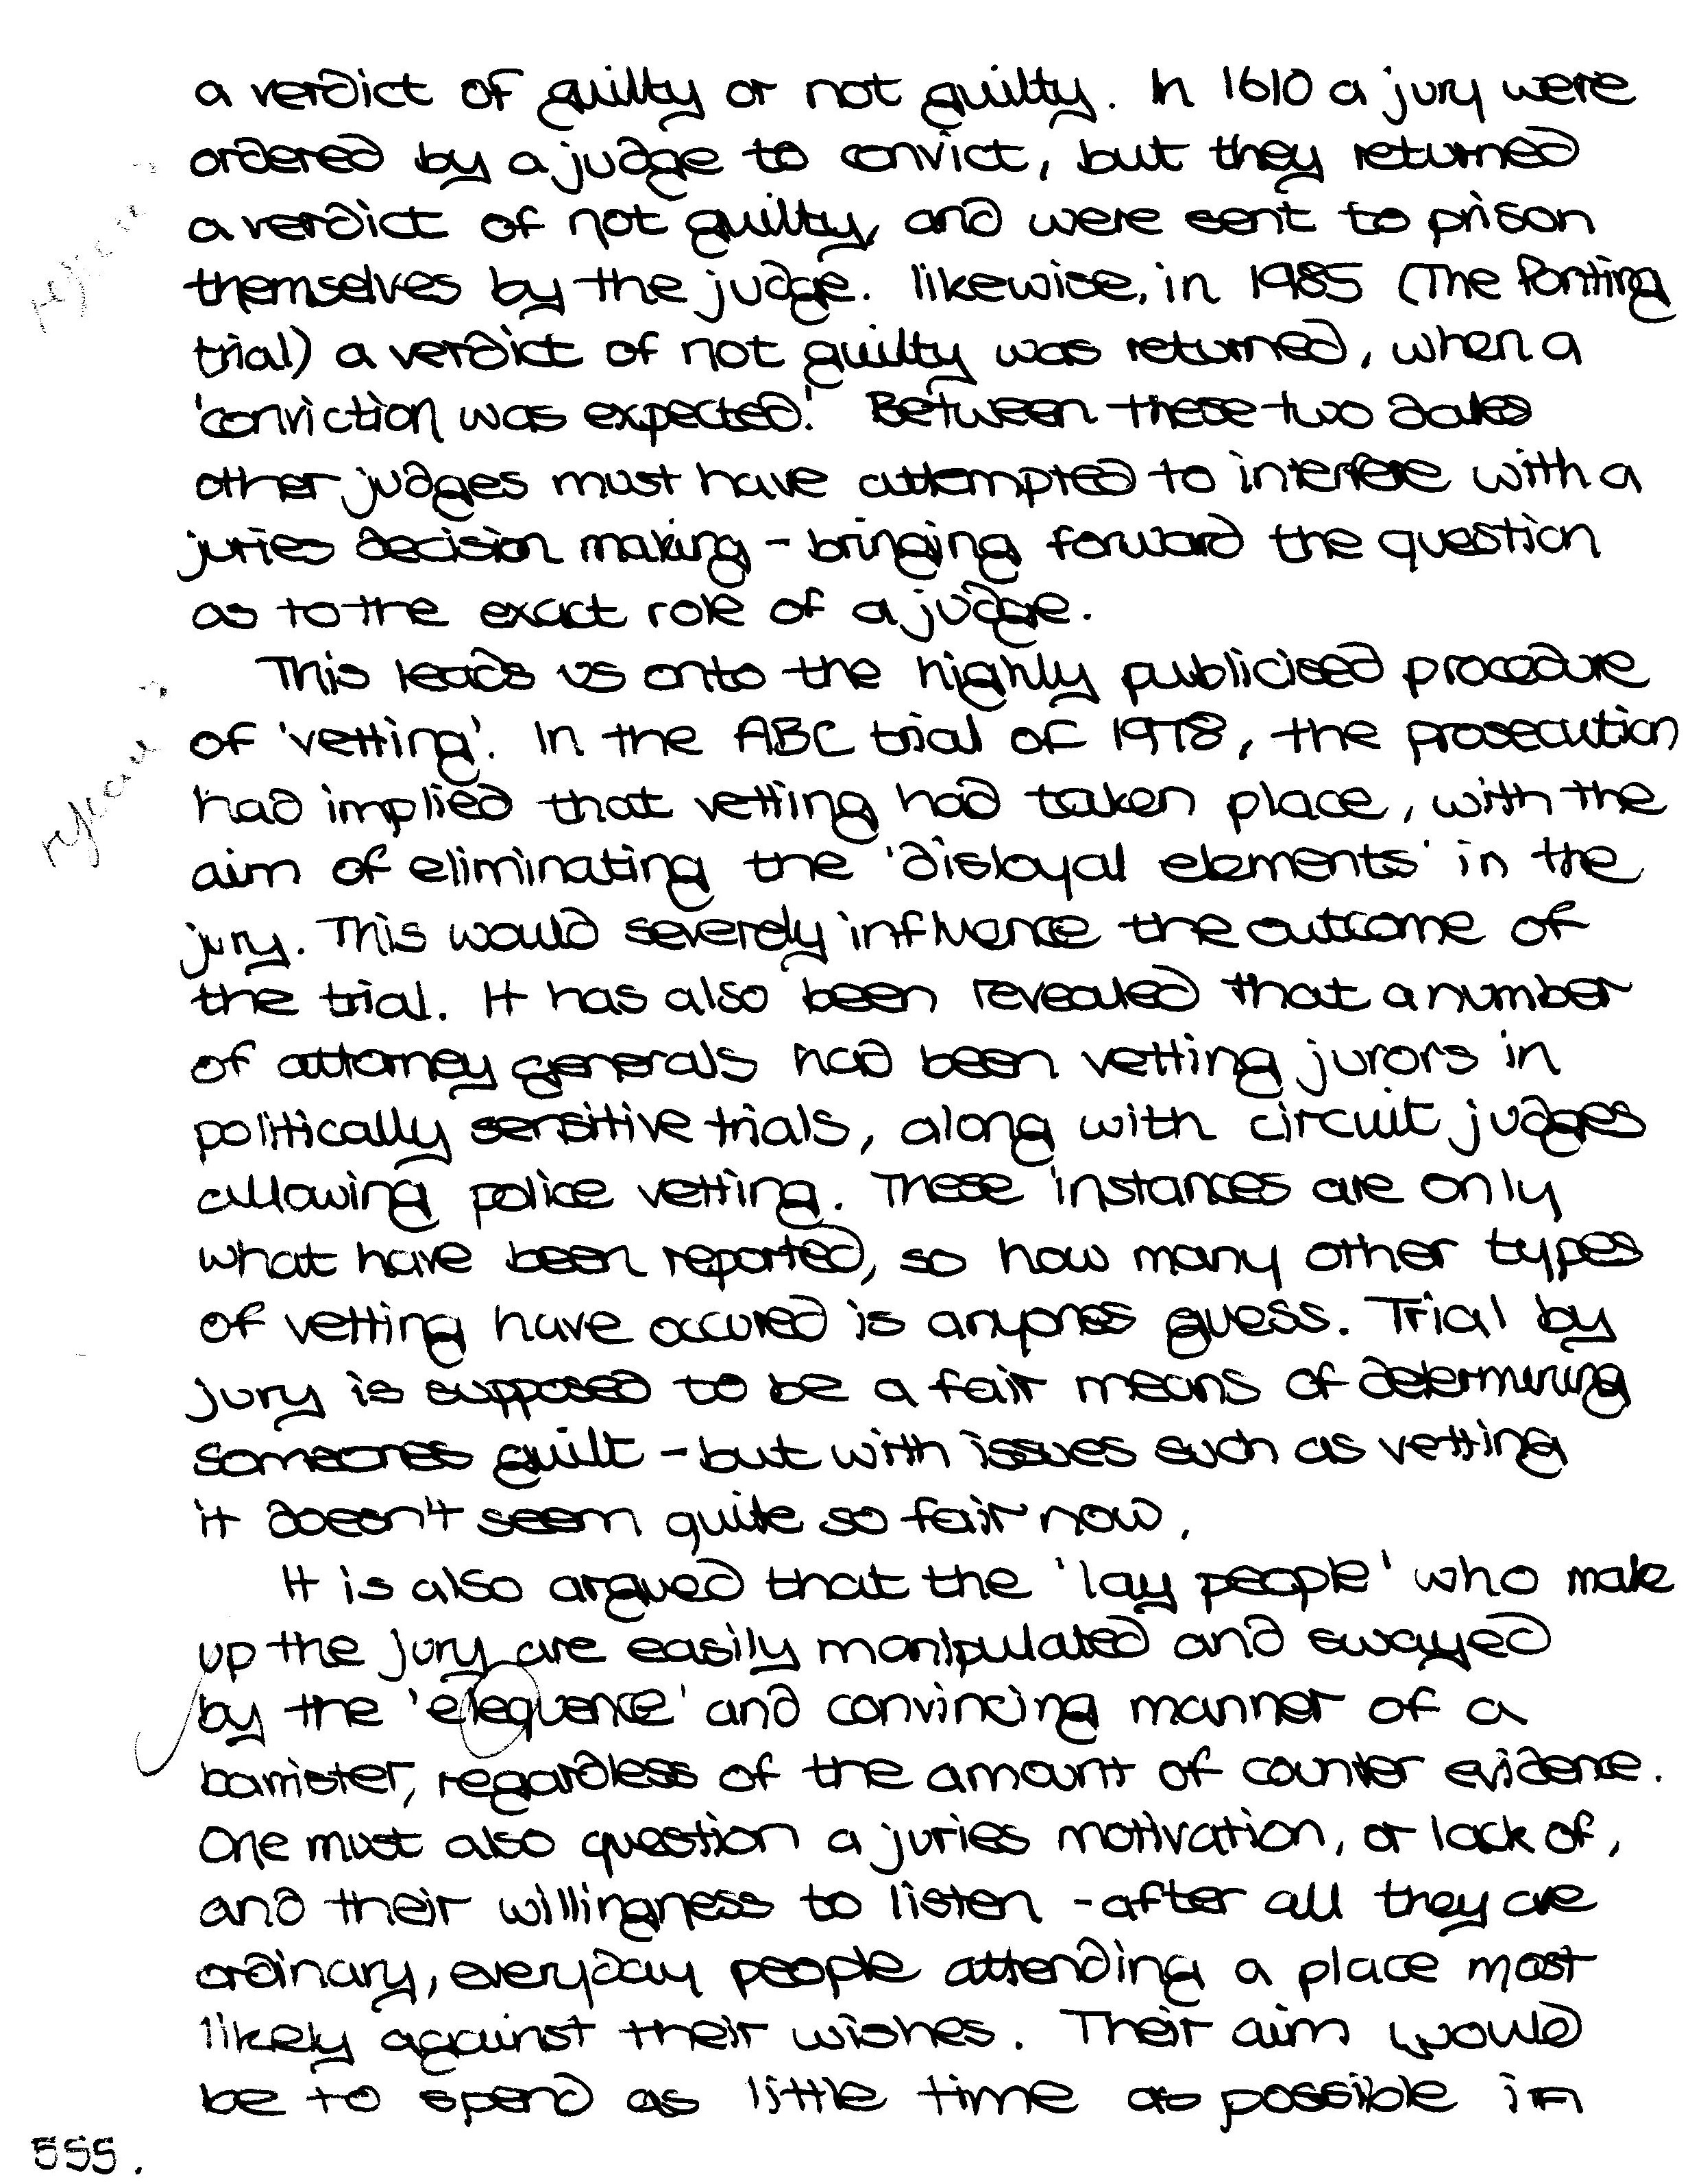 a verdict of guilty or not guilty. In 1610 a jury were
ordered by a judge to convict, but they returned
a verdict of not guilty, and were sent to prison
themselves by the judge. likewise, in 1985 (The Ponting
trial) a verdict of not guilty was returned, when a
'conviction was expected.' Between these two dates
other judges must have attempted to interfere with a
juries decision making - bringing forward the question
as to the exact role of a judge.
This leads us onto the highly publicised procedure
of 'vetting'. In the ABC trial of 1978, the prosecution
had implied that vetting had taken place, with the
aim of eliminating the 'disloyal elements' in the
jury. This would severely influence the outcome of
the trial. It has also been revealed that a number
of attorney generals had been vetting jurors in
politically sensitive trials, along with circuit judges
allowing police vetting. These instances are only
what have been reported, so how many other types
of vetting have occured is anyones guess. Trial by
jury is supposed to be a fair means of determining
someones guilt - but with issues such as vetting
it doesn't seem quite so fair now.
It is also argued that the 'lay people' who make
up the jury are easily manipulated and swayed
by the 'elequence' and convincing manner of a
barrister, regardless of the amount of counter evidence.
One must also question a juries motivation, or lack of,
and their willingness to listen - after all they are
ordinary, everyday people attending a place most
likely against their wishes. Their aim would
be to spend as little time as possible in
555.